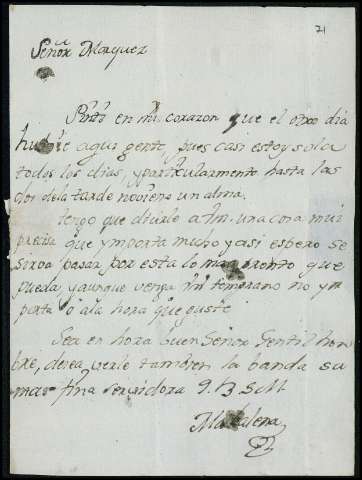 71
Señor Marquez
Sintio en mi corazon que el otro dia
hubiese aqui gente, pues casi estoy sola
todos los dias, y particularmente hasta las
dos de la tarde no viene un alma.
tengo que dicirlo a Vm. una cosa mui
precisa que ymporta mucho y asi espero se
sirva pasar por esta lo mas pronto que
pueda, y aunque venga mui temprano no ym
porta, ó ala hora que guste
Sea en hora buena Señor Gentil hom
bre, desea verle tambien la banda su
mas fina servidora Q. B. S. M.
Madalena